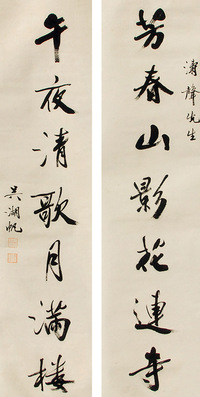 濤聲先生
芳春山影花連寺
午夜清歌月滿楼
吳湖帆